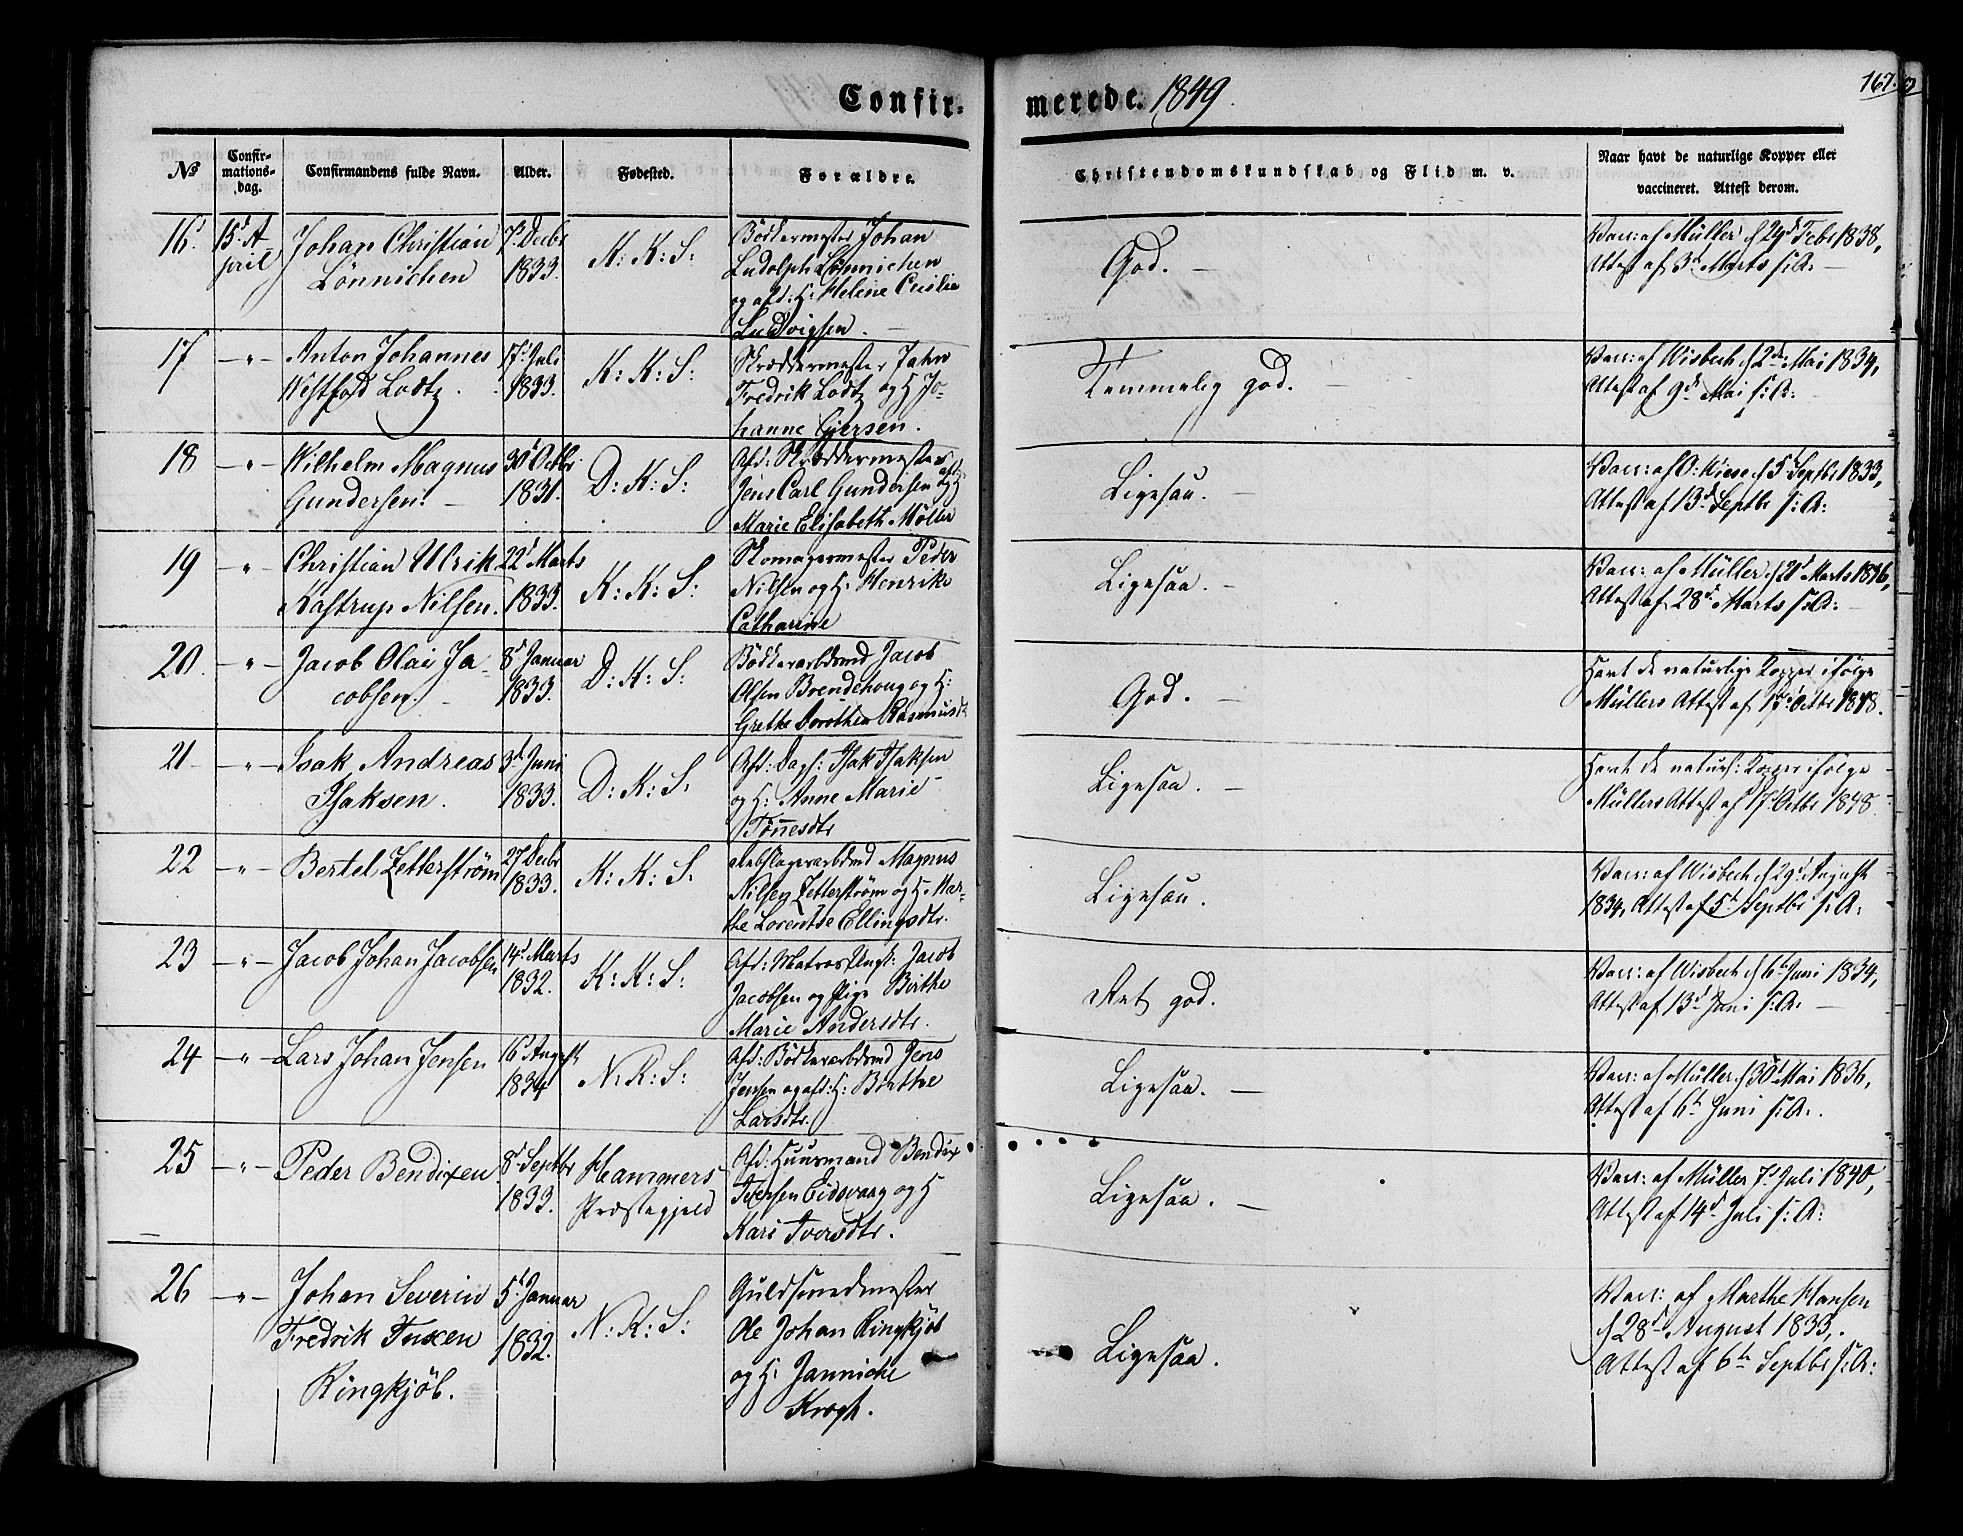 Confir- merede. 1849.
167.
No
Confir-
mations-
dag.
Confirmandens fulde Navn.
Alder.
Fødested.
Forældre.
Christendomskundskab og Flid m. v.
Naar havt de naturlige Kopper eller
vaccineret. Attest derom.
16. 15d A-
pril
Johan Christian
Lönnichen
7d Decbr
1833.
K: K: S:
Bödkermester Johan
Ludolph Lönnichen
og afd: H: Helene Cecilie
Ludvigsen.
God. —
Vacc: af Müller d 29d Febr 1838,
Attest af 3d Marts s: A: —
17 —"— Anton Johannes
Westfod Lodtz.
17d Juli
1833.
K: K: S:
Skræddermester Jahn
Fredrik Lodtz og H Jo-
hanne Giersen.
Temmelig god. —
Vacc: af Wisbech d 2den Mai 1834,
Attest af 9d Mai s: A:
18 —"— Wilhelm Magnus
Gundersen. —
30d Octbr
1831.
D: K: S:
Afd: Skræddermester
Jens Carl Gundersen og afd: H:
Marie Elisabeth Möller
Ligesaa. —
Vacc: af d 5d Septbr 1833,
Attest af 13d Septbr s: A:
19 " Christian Ulrik
Kastrup Nilsen.
22d Marts
1833.
K: K: S:
Skomagermester Peder
Nilsen og H: Henrike
Catharine
Ligesaa. —
Vacc: af Müller d 21d Marts 1836,
Attest af 28d Marts s: A: —
20. —"— Jacob Olai Ja-
cobsen. —
8d Januar
1833.
D: K: S:
Bödkerarbdmd Jacob
Olsen Brendehoug og H:
Grethe Dorothea Rasmusdt
God. —
Havt de naturlige Kopper ifølge
Müllers Attest af 17d Octbr 1848.
21 —"— Isak Andreas
Isaksen.
3d Juni
1833.
D: K: S:
Afd: Dags: Isak Isaksen
og H: Anne Marie
Tönnesdtr
Ligesaa. —
Havt de naturl: Kopper ifølge
Müllers Attest af 17d Octbr 1848.
22 —"— Bertel Zetterström
27 Decbr
1833.
K: K: S:
Rebslagerarbdmd Magnus
Nilsen Zetterström og H Mar-
the Lorentse Ellingsdtr.
Ligesaa.
Vacc: af Wisbech d 29d August
1834, Attest af 5d Septbr s: A:
23 —"— Jacob Johan Jacobsen
14d Marts
1832.
K: K: S:
Afd: Matros Ungk: Jacob
Jacobsen og Pige Birthe
Marie Andersdtr.
Ret god.
Vacc: af Wisbech d 6te Juni 1834,
Attest af 13d Juni s: A: —
24 —"— Lars Johan Jensen
16d August
1834
N: K: S:
Afd: Bödkerarbdmd Jens
Jensen og afd: H: Birthe
Larsdtr.
Ligesaa. —
Vacc: af Müller d 30d Mai 1836,
Attest af 6te Juni s: A:.
25 —"— Peder Bendixen
8d Septbr
1833.
Hammers
Præstegjeld
Afd: Huusmand Bendix
Iversen Eidsvaag og H
Kari Iversdtr.
Ligesaa. —
Vacc: af Müller 7d Juli 1840,
Attest af 14d Juli s: A:
26 —"— Johan Severin
Fredrik Tuxen
Ringkjöb.
5te Januar
1832.
N: K: S:
Guldsmedmester
Ole Johan Ringkjöb
og H: Jannicke
Krogh.
Ligesaa.
Vacc: af Marthe Hansen
d 28d August 1833,
Attest af 6te Septbr s: A: